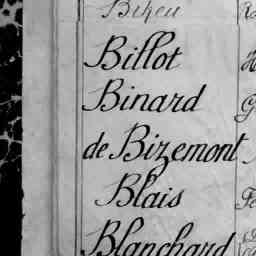 Billot
Binard
de Bizemont
Blais
Blanchard